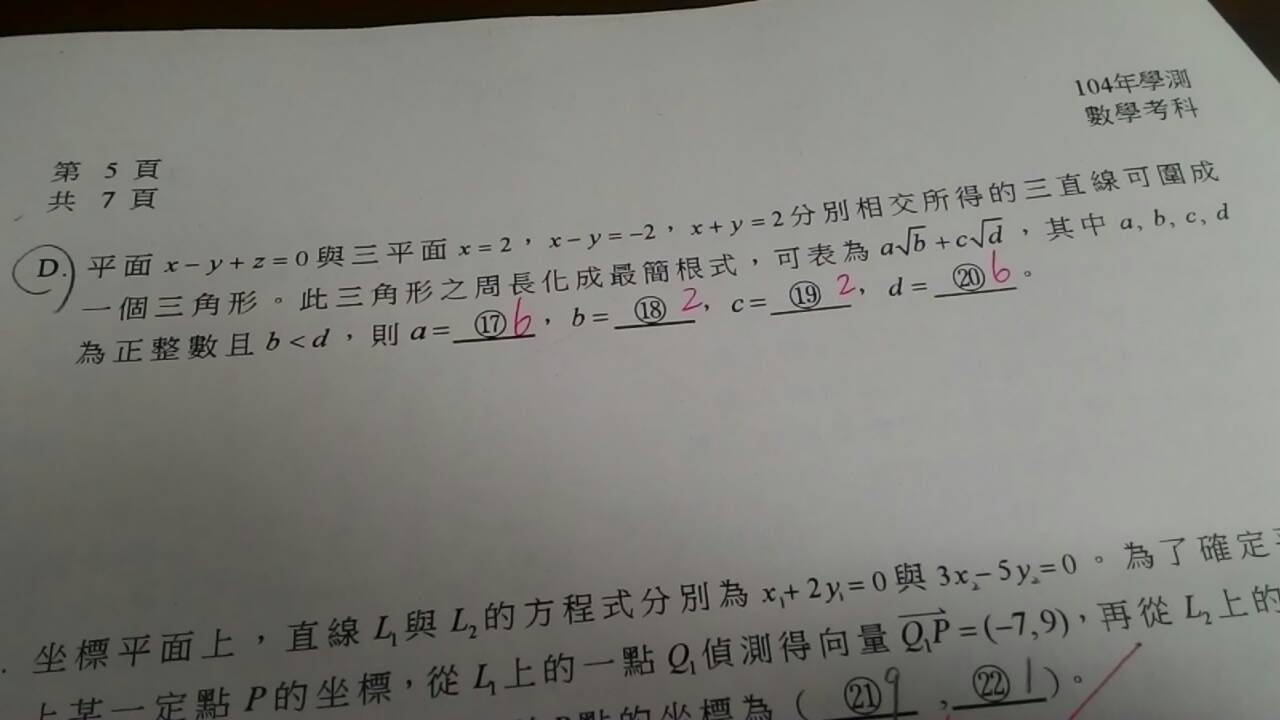 104年學測
數學考科
第 5 頁
共 7 頁
D. 平面 x－y＋z＝0與三平面 x＝2，x－y＝－2，x＋y＝2分別相交所得的三直線可圍成
一個三角形。此三角形之周長化成最簡根式，可表為 a√b＋c√d，其中 a, b, c, d
為正整數且 b＜d，則 a＝⑰6，b＝⑱2，c＝⑲2，d＝⑳6。
坐標平面上，直線 L₁與 L₂的方程式分別為 x₁＋2y₁＝0與 3x₂－5y₂＝0。為了確定
上某一定點 P的坐標，從 L₁上的一點 Q₁偵測得向量 Q₁P＝(－7,9)，再從 L₂上的
點的坐標為（㉑9，㉒1）。